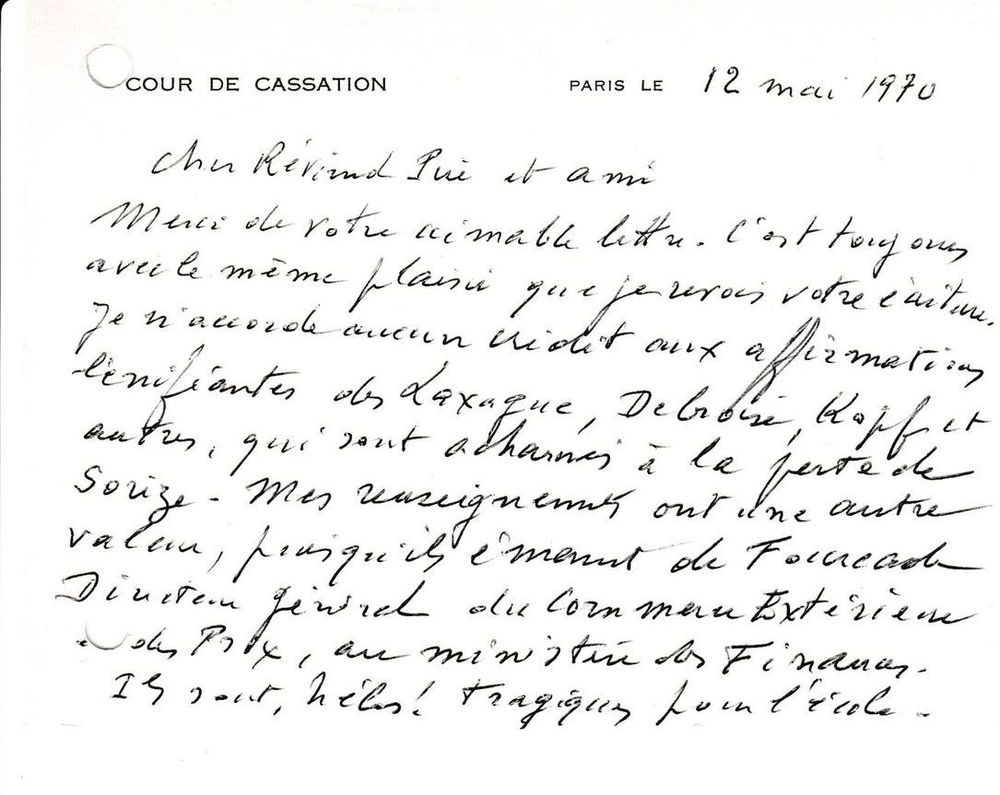 COUR DE CASSATION PARIS LE 12 mai 1970
Cher Révérend Père et ami
Merci de votre aimable lettre. C'est toujours
avec le même plaisir que je revois votre écriture.
Je n'accorde aucun crédit aux affirmations
lénifiantes des Laxague, Debroise, Kopf et
autres, qui sont acharnés à la perte de
Sorize - Mes renseignements ont une autre
valeur, puisqu'ils émanent de Fourcade
Directeur général du Commerce Extérieur
et des Prix, au ministère des Finances.
Ils sont, hélas! tragiques pour l'école -